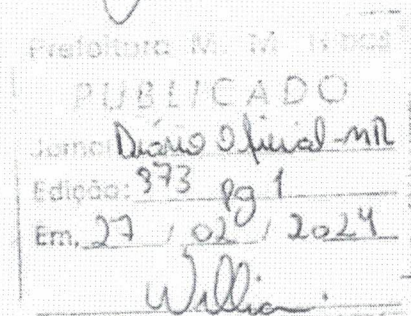 Prefeitura M. M.
PUBLICADO
Jornal Diário Oficial-MR
Edição: 973 pg 1
Em, 27 / 02 / 2024
Willian.